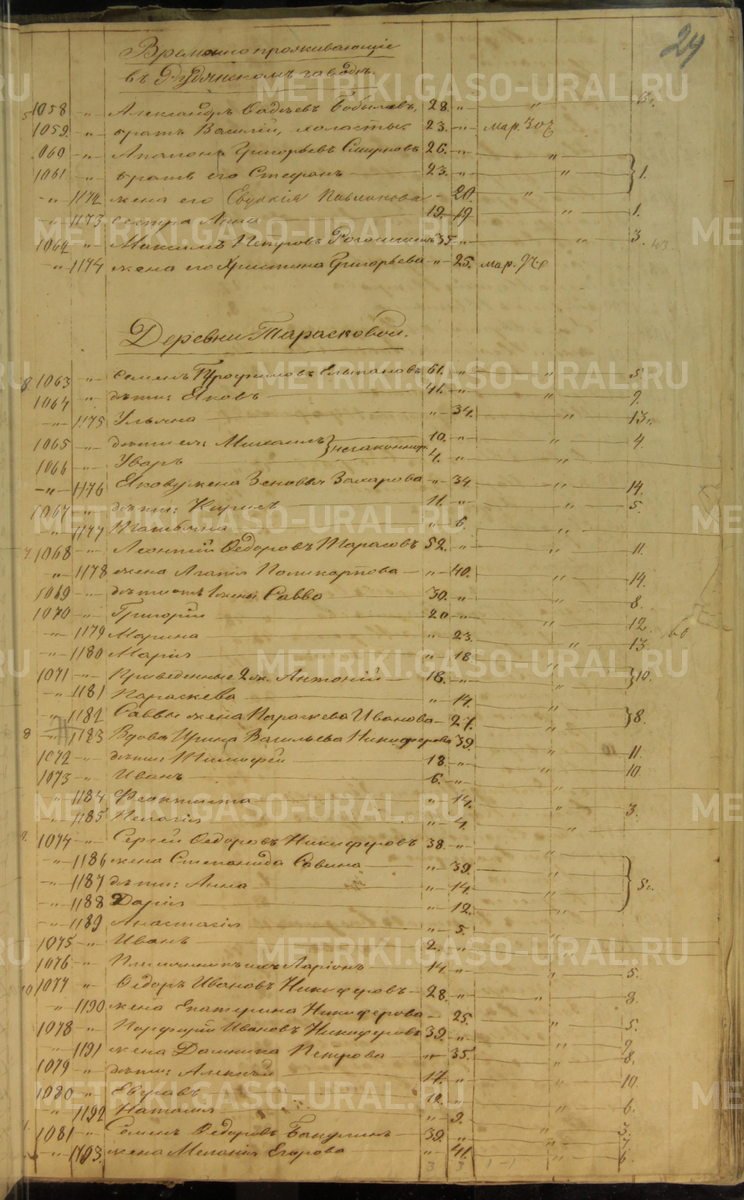 24
Временно проживающіе
въ Рудянскомъ заводѣ.
1058 " Александръ 28. " "
1059. " братъ Василій, холостъ 23. " мар. 302
1060 " Григорьевъ Смирновъ 26. "
1061 " братъ его Стефанъ 23. " " } 1.
" 1172 жена его Евдокія " 20. "
" 1173 сестра Анна 19. " 1.
1062 " Максимъ Петровъ 35. " " 3.
" 1174 жена его Христина Григорьева " 25. мар.
Деревни Тарасковой.
8 1063 " Семенъ Трофимовъ 61. " " 5.
1064 " дѣти: Яковъ 41. " " 9.
" 1175 Ульяна " 34. " 13.
1065 " дѣти ея: Михаилъ } незаконнор. 10. " " 4.
1066 " Уваръ 4. " "
" 1176 Якову жена Зеновья Захарова " 34 " 14.
1067 " дѣти: Кирилъ 11. " " 5.
" 1177 " 6. "
1068 " Леонтій Ѳедоровъ Тарасовъ 52. " " 11.
" 1178 жена Агапія Поликарпова " 40. " 14.
1069 " дѣти отъ 1 жены Савва 30. " " 8.
1070 " Григорій 20 " " 12.
" 1179 Марина " 23. " 13.
" 1180 Марія " 18. "
1071 " Приведенные 2 ж. Антоній 16. " " } 10.
" 1181 Параскева " 14. "
" 1182 Саввы жена Параскева Иванова " 27. " } 8.
9 " 1183 Вдова Ирина Васильева Никиферова 39. "
1072 " дѣти: Тимофей 18. " " 11.
1073 " Иванъ 6. " " 10.
" 1184 Феоктиста " 14. "
" 1185 Пелагія " 4. " 3.
1074 " Сергій Ѳедоровъ Никиферовъ 38. " "
" 1186 жена Степанида Савина " 39. " } 5.
" 1187 дѣти: Анна " 14. "
" 1188 Дарія " 12. "
" 1189 Анастасія " 5. "
1075 " Иванъ 2. " "
1076 " Ларіонъ 14. " " 5.
1077 " Ѳедоръ Ивановъ Никиферовъ 28. " " 8.
" 1190 жена Екатерина Никиферова " 25. "
1078 " Порфирій Ивановъ Никиферовъ 39. " " 5.
" 1191 жена Домника Петрова " 35. " 9.
1079 " дѣти: Алексѣй 17. " " 8.
1080 " 12. " " 10.
" 1192 Наталія " 9. " 6.
1081 " Семенъ Ѳедоровъ 39. " " 3.
" 1193. жена Меланія Егорова " 41. " 6.
METRIKI.GASO-URAL.RU